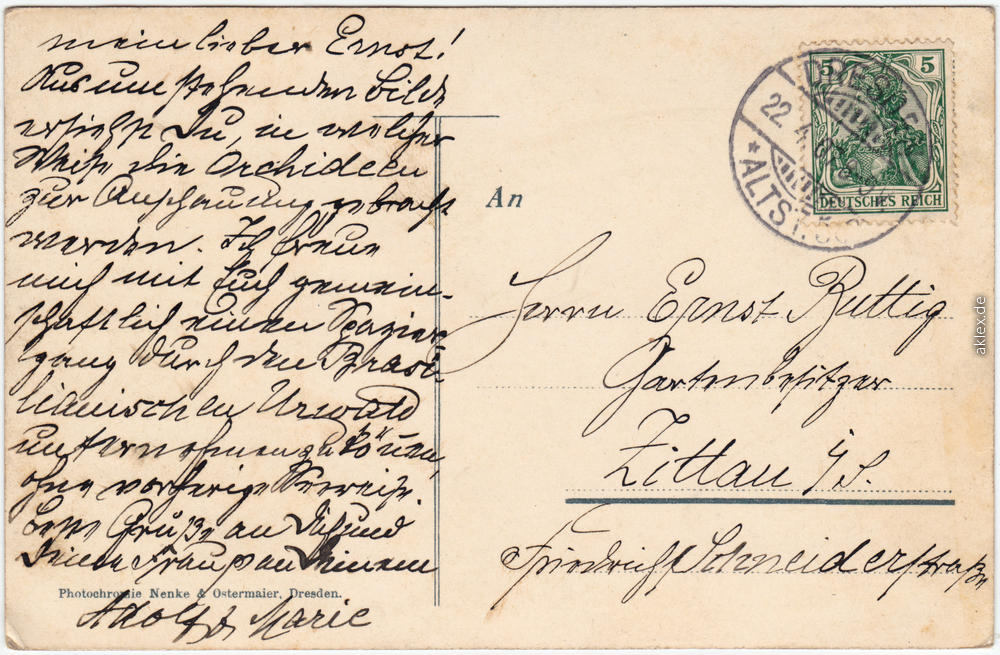 mein lieber Ernst!
Aus um stehenden Bilde
ersiehst Du, in welcher
Weise die Orchideen
zur Anschauung gebracht
werden. Ich freue
mich mit Euch gemein-
schaftlich einen Spazier
gang durch den Brasi-
lianischen Urwald
unternehmen zu können,
ohne vorherige Seereise.
beste Grüße an Dich und
Deine Frau von Deinem
Adolf & Marie
Photochromie Nenke & Ostermaier, Dresden.
An
Herrn Ernst Ruttig
Gartenbesitzer
Zittau i/S.
Friedrich Schneiderstraße
5 5
DEUTSCHES REICH
DRESDEN
22.
* ALTST.
aklex.de